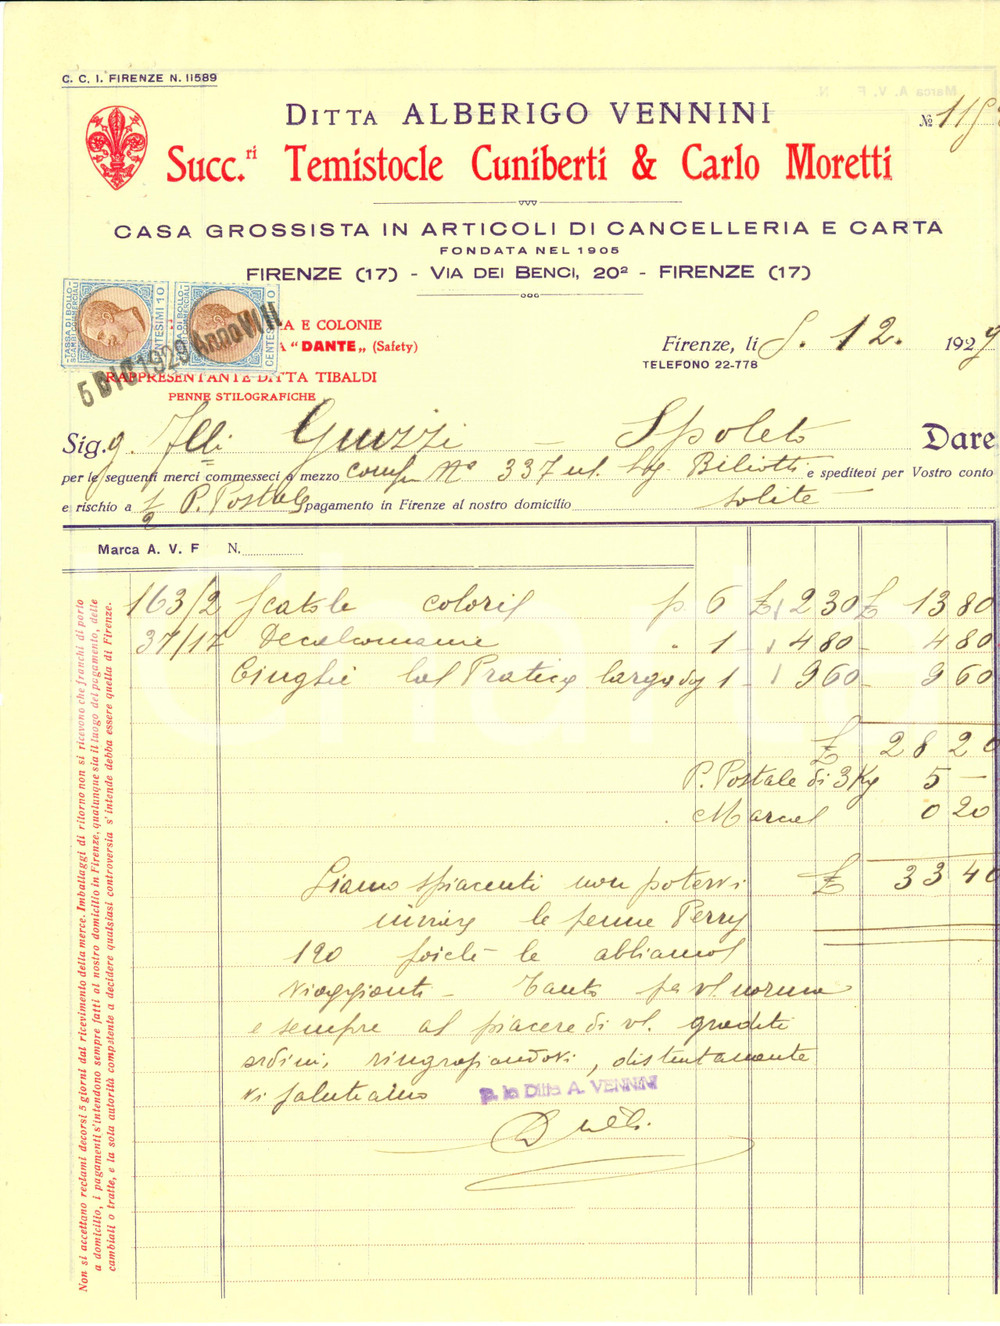 C. C. I. FIRENZE N. 11589
DITTA ALBERIGO VENNINI
Nº 115
Succ.ri Temistocle Cuniberti & Carlo Moretti
CASA GROSSISTA IN ARTICOLI DI CANCELLERIA E CARTA
FONDATA NEL 1905
FIRENZE (17) - VIA DEI BENCI, 20² - FIRENZE (17)
TASSA DI BOLLO
SCAMBI COMMERCIALI
CENTESIMI 10
5 DIC 1929 Anno VIII
A E COLONIE
A "DANTE" (Safety)
RAPPRESENTANTE DITTA TIBALDI
PENNE STILOGRAFICHE
Firenze, li 5. 12. 1929
TELEFONO 22-778
Sig.g. Flli Guzzi - Spoleto Dare
per le seguenti merci commesseci a mezzo N° 337 Sig. Biliotti e spediteVi per Vostro conto
e rischio a ½ P. Postale pagamento in Firenze al nostro domicilio solite
Marca A. V. F N.
163/2 Scatole colori p 6 £ 2 30 £ 13 80
37/17 Decalcomanie " 1 - 4 80 - 4 80
Cinghie Pratica larga 1 - 9 60 - 9 60
£ 28 20
P. Postale di 3 Kg 5 -
Marca 0 20
£ 33 40
Siamo spiacenti non potervi
inviare le penne Perry
120 poichè le abbiamo
viaggianti - Tanto pr vs. norma
e sempre al piacere di vs. graditi
ordini, ringraziandovi, distintamente
vi salutiamo
p. la Ditta A. VENNINI
Non si accettano reclami decorsi 5 giorni dal ricevimento della merce. Imballaggi di ritorno non si ricevono che franchi di porto
a domicilio, i pagamenti s'intendono sempre fatti al nostro domicilio in Firenze, qualunque sia il luogo del pagamento, delle
cambiali o tratte, e la sola autorità competente a decidere qualsiasi controversia s'intende debba essere quella di Firenze.